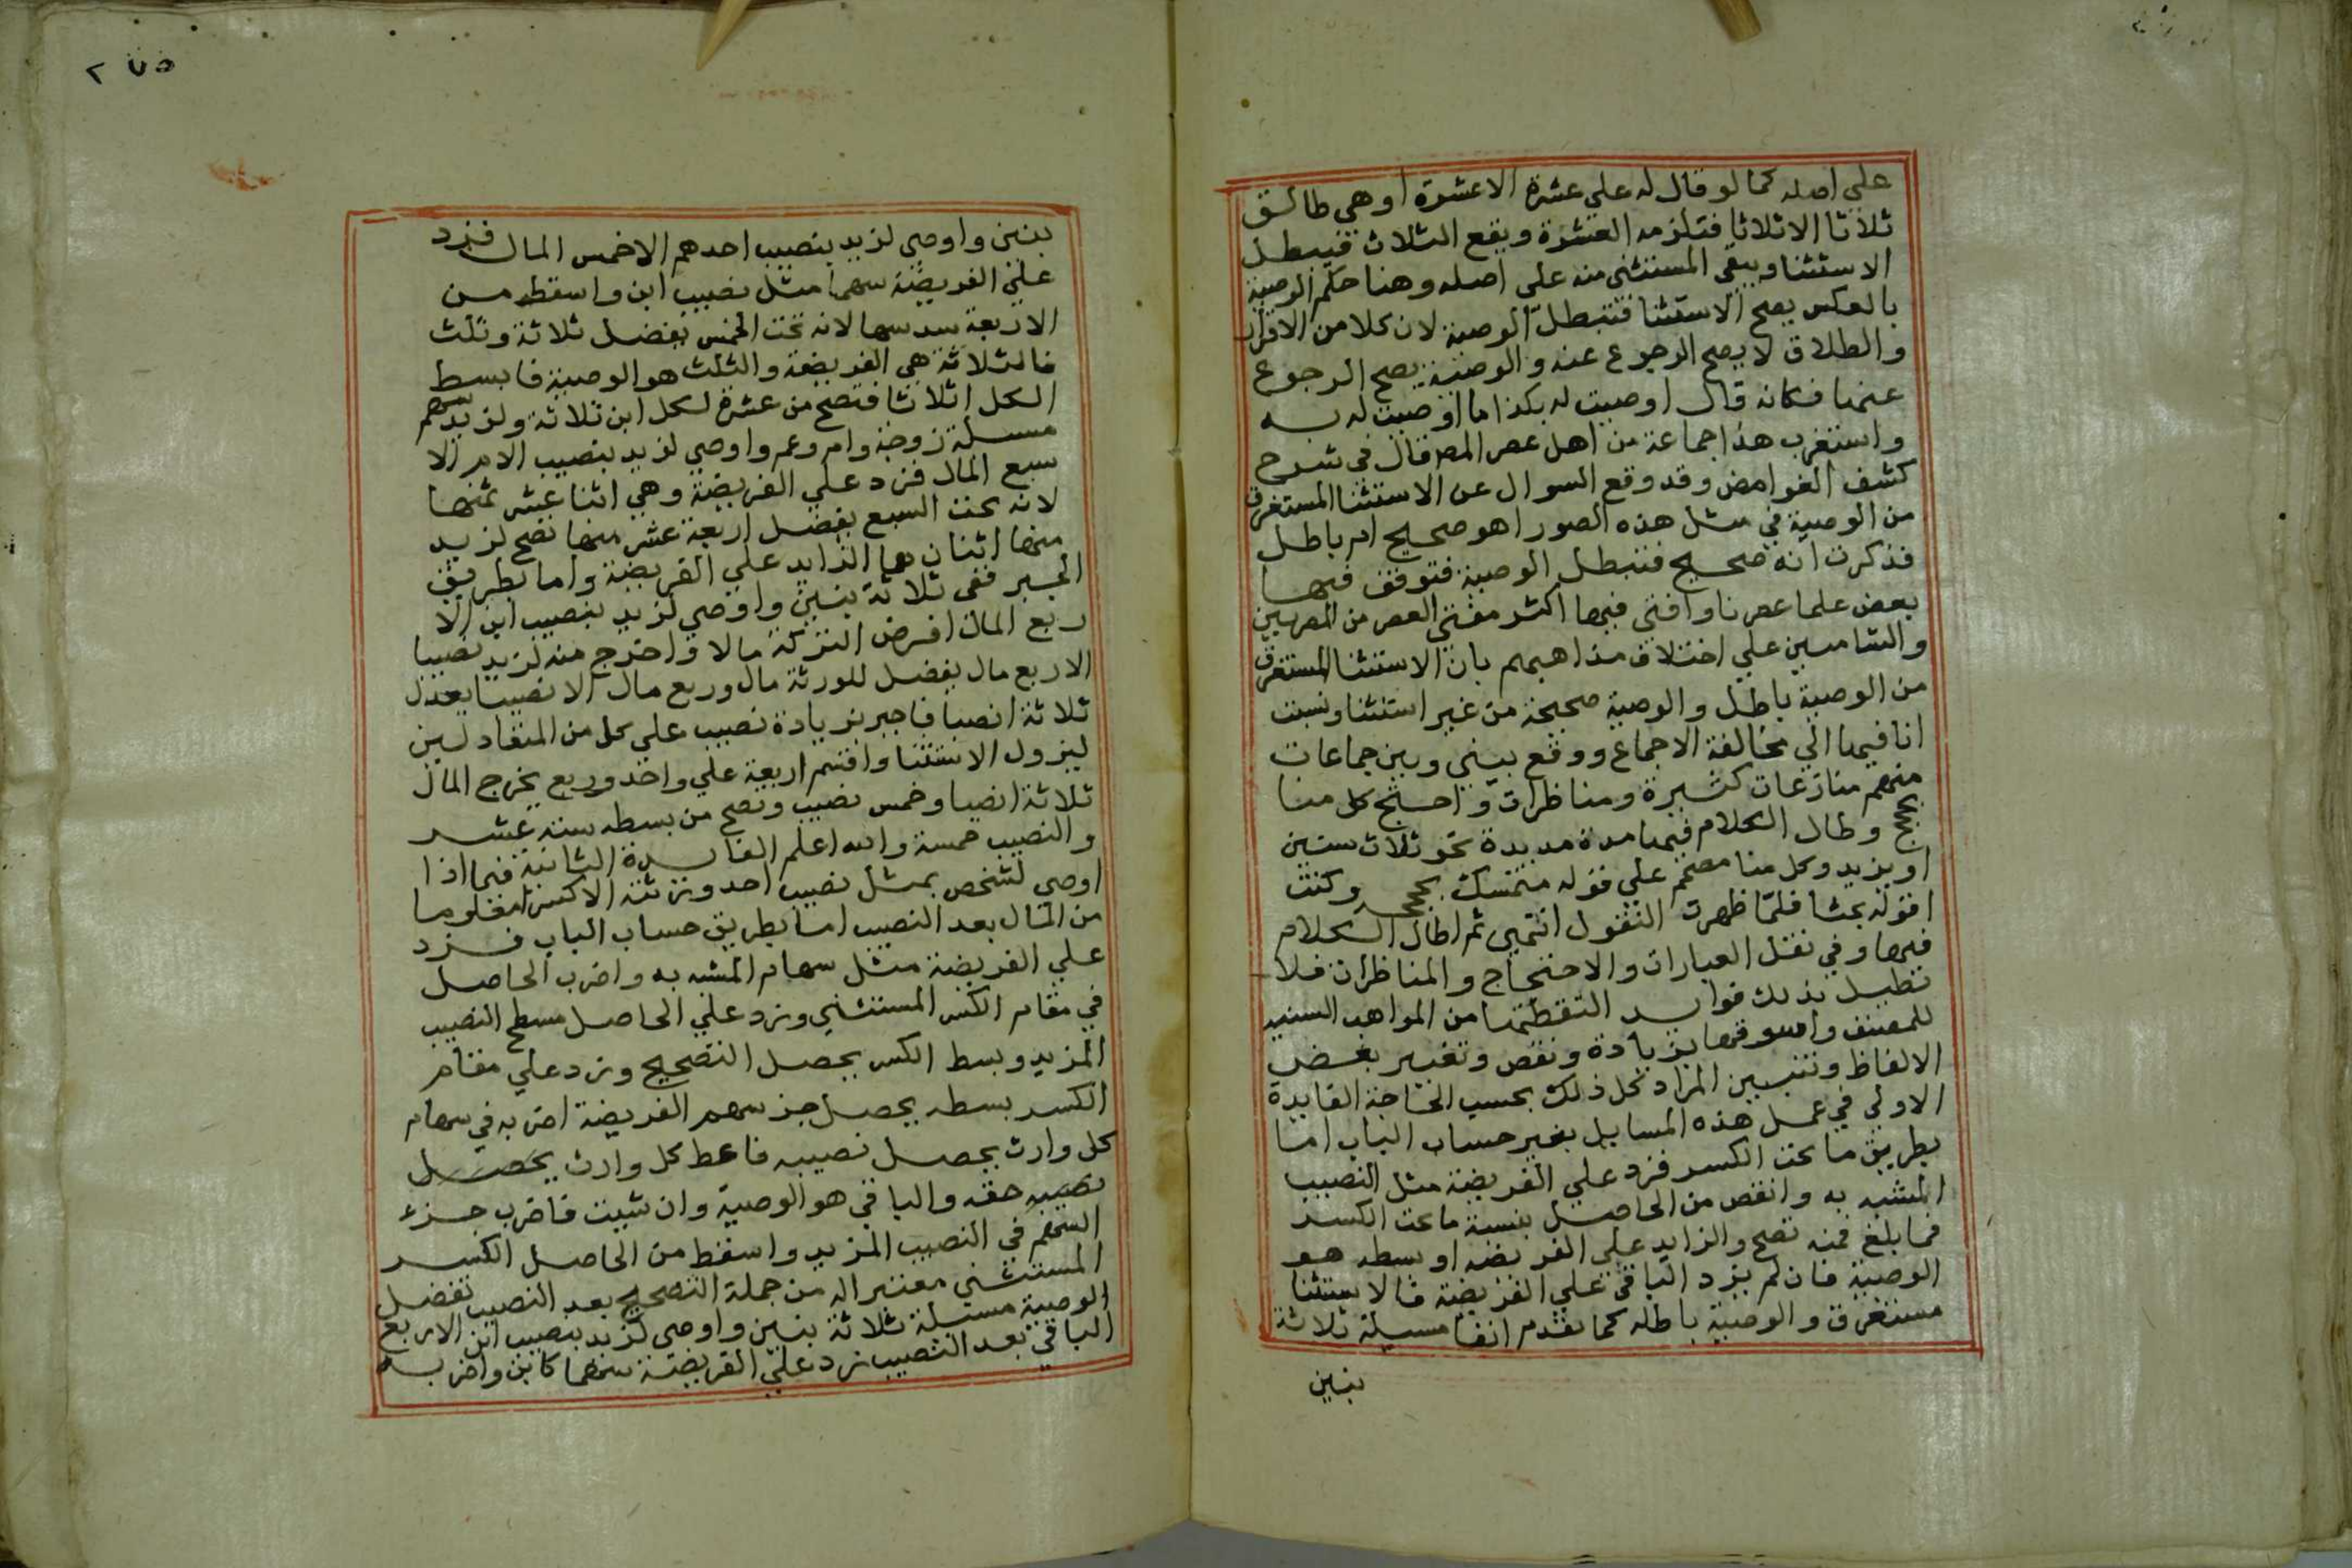 علي اصله كما لو قال له علي عشرة الا عشرة او هي طالق
ثلاثا الا ثلاثا فتلزمه العشرة ويقع الثلاث فيبطل
الاستثنا ويبقي المستثني منه علي اصله وهنا حكم الوصية
بالعكس يصح الاستثنا فتبطل الوصية لان كلا من الاقرار
والطلاق لا يصح الرجوع عنه والوصية يصح الرجوع
عنها فكانه قال اوصيت له بكذا ما اوصيت له به
واستغرب هذا جماعة من اهل عصر المص قال في شرح
كشف الغوامض وقد وقع السوال عن الاستثنا المستغرق
من الوصية في مثل هذه الصور اهو صحيح ام باطل
فذكرت انه صحيح فتبطل الوصية فتوقف فيها
بعض علما عصرنا وافتي فيها اكثر مفتي العصر من المصريين
والشاميين علي اختلاف مذاهبهم بان الاستثنا المستغرق
من الوصية باطل والوصية صحيحة من غير استثنا ونسبت
انا فيها الي مخالفة الاجماع ووقع بيني وبين جماعات
منهم منازعات كثيرة ومناظرات واحتج كل منا
بحجج وطال الكلام فيها مدة مديدة نحو ثلاث سنين
او يزيد وكل منا مصمم علي قوله متمسك بحججه وكنت
اقوله بحثا فلما ظهرت النقول انتهي ثم اطال الكلام
فيها وفي نقل العبارات والاحتجاج والمناظرات فلا
نطيل بذلك فوايد التقطتها من المواهب السنيه
للمصنف واسوقها بزيادة ونقص وتغيير بعض
الالفاظ وتبيين المراد كل ذلك بحسب الحاجة الفايدة
الاولي في عمل هذه المسايل بغير حساب الباب اما
بطريق ما تحت الكسر فزد علي الفريضة مثل النصيب
المشبه به وانقص من الحاصل بنسبة ما تحت الكسر
فما بلغ فمنه تصح والزايد علي الفريضة او بسطه هو
الوصية فان لم يزد الباقي علي الفريضة فالاستثنا
مستغرق والوصية باطله كما تقدم انفا مسيلة ثلاثة
بنين
٢٧٥
بنين واوصي لزيد بنصيب احدهم الا خمس المال فزد
علي الفريضة سهما مثل نصيب ابن واسقط من
الاربعة سدسها لانه تحت الخمس يفضل ثلاثة وثلث
فالثلاثة هي الفريضة والثلث هو الوصية فابسط
الكل اثلاثا فتصح من عشرة لكل ابن ثلاثة ولزيد سهم
مسيلة زوجة وام وعم واوصي لزيد بنصيب الام الا
سبع المال فزد علي الفريضة وهي اثنا عشر ثمنها
لانه تحت السبع يفضل اربعة عشر منها تصح لزيد
منها اثنان هما الزايد علي الفريضة واما بطريق
الجبر ففي ثلاثة بنين واوصي لزيد بنصيب ابن الا
ربع المال افرض التركة مالا واخرج منه لزيد نصيبا
الا ربع مال يفضل للورثة مال وربع مال الا نصيبا يعدل
ثلاثة انصبا فاجبر بزيادة نصيب علي كل من المتعادلين
ليزول الاستثنا واقسم اربعة علي واحد وربع يخرج المال
ثلاثة انصبا وخمس نصيب وتصح من بسطه ستة عشر
والنصيب خمسة والله اعلم الفايدة الثانية فيما اذا
اوصي لشخص بمثل نصيب احد ورثته الا كسرا معلوما
من المال بعد النصيب اما بطريق حساب الباب فزد
علي الفريضة مثل سهام المشبه به واضرب الحاصل
في مقام الكسر المستثني وزد علي الحاصل مسطح النصيب
المزيد وبسط الكسر يحصل التصحيح وزد علي مقام
الكسر بسطه يحصل جز سهم الفريضة اضربه في سهام
كل وارث يحصل نصيبه فاعط كل وارث يحصل
نصيبه حقه والباقي هو الوصية وان شيت فاضرب جزء
السهم في النصيب المزيد واسقط من الحاصل الكسر
المستثني معتبرا له من جملة التصحيح بعد النصيب تفضل
الوصية مسيلة ثلاثة بنين واوصي لزيد بنصيب ابن الا ربع
الباقي بعد النصيب زد علي الفريضة سهما كابن واضربه